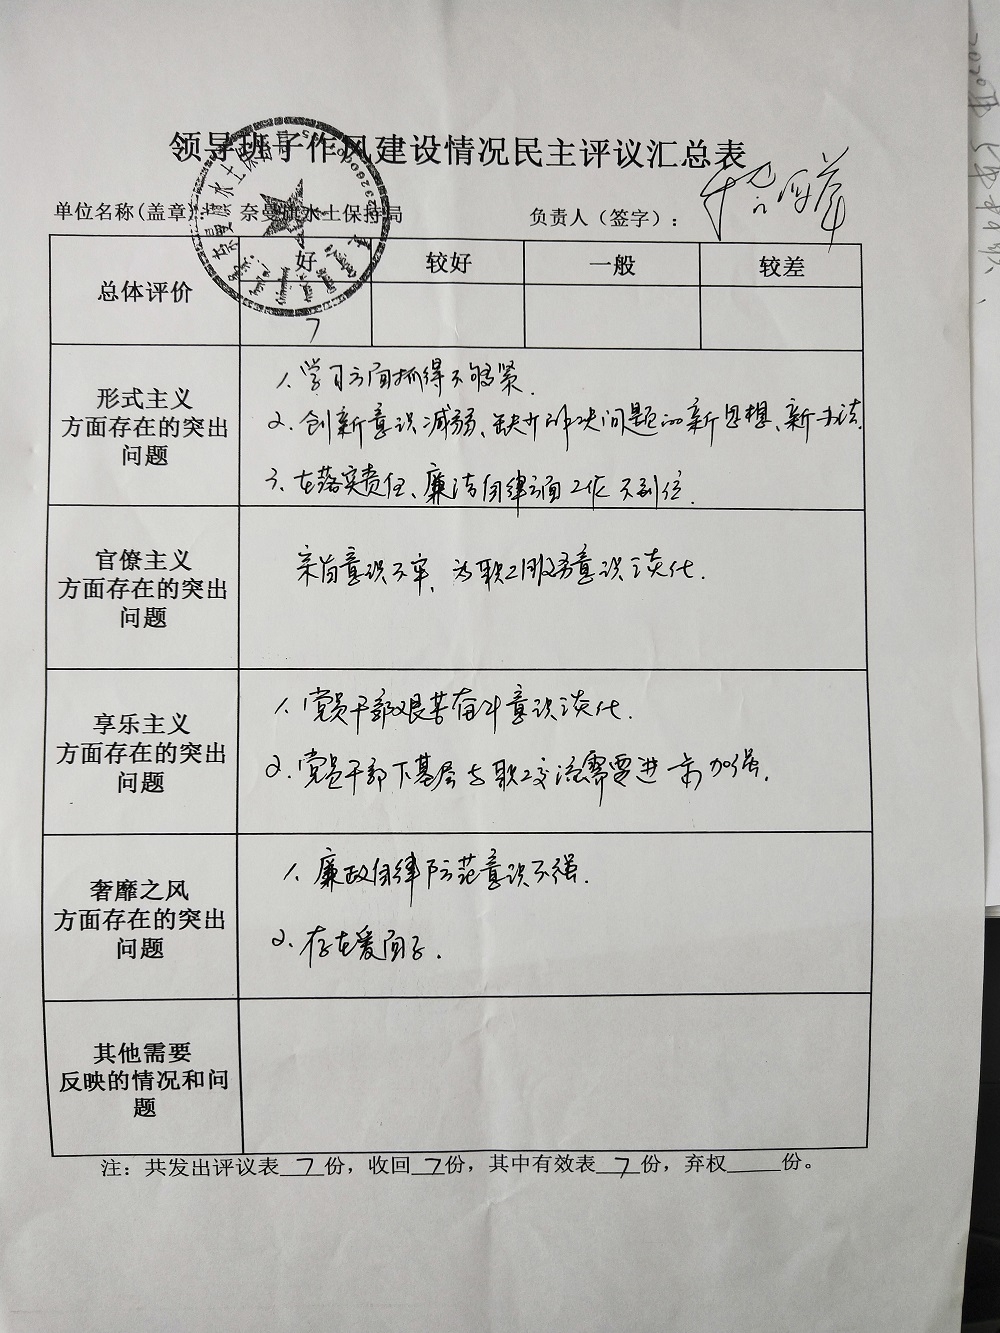 领导班子作风建设情况民主评议汇总表
单位名称(盖章): 奈曼旗水土保持局 负责人（签字）:
总体评价 好 较好 一般 较差
7
形式主义
方面存在的突出
问题
1、学习方面抓得不够紧.
2、创新意识减弱、缺少解决问题的新思想、新办法.
3、在落实责任、廉洁自律方面工作不到位.
官僚主义
方面存在的突出
问题
宗旨意识不牢，为职工服务意识淡化.
享乐主义
方面存在的突出
问题
1、党员干部艰苦奋斗意识淡化.
2、党员干部下基层与职工交流需要进一步加强.
奢靡之风
方面存在的突出
问题
1、廉政自律防范意识不强.
2、存在爱面子.
其他需要
反映的情况和问
题
注：共发出评议表 7 份，收回 7 份，其中有效表 7 份，弃权____份。